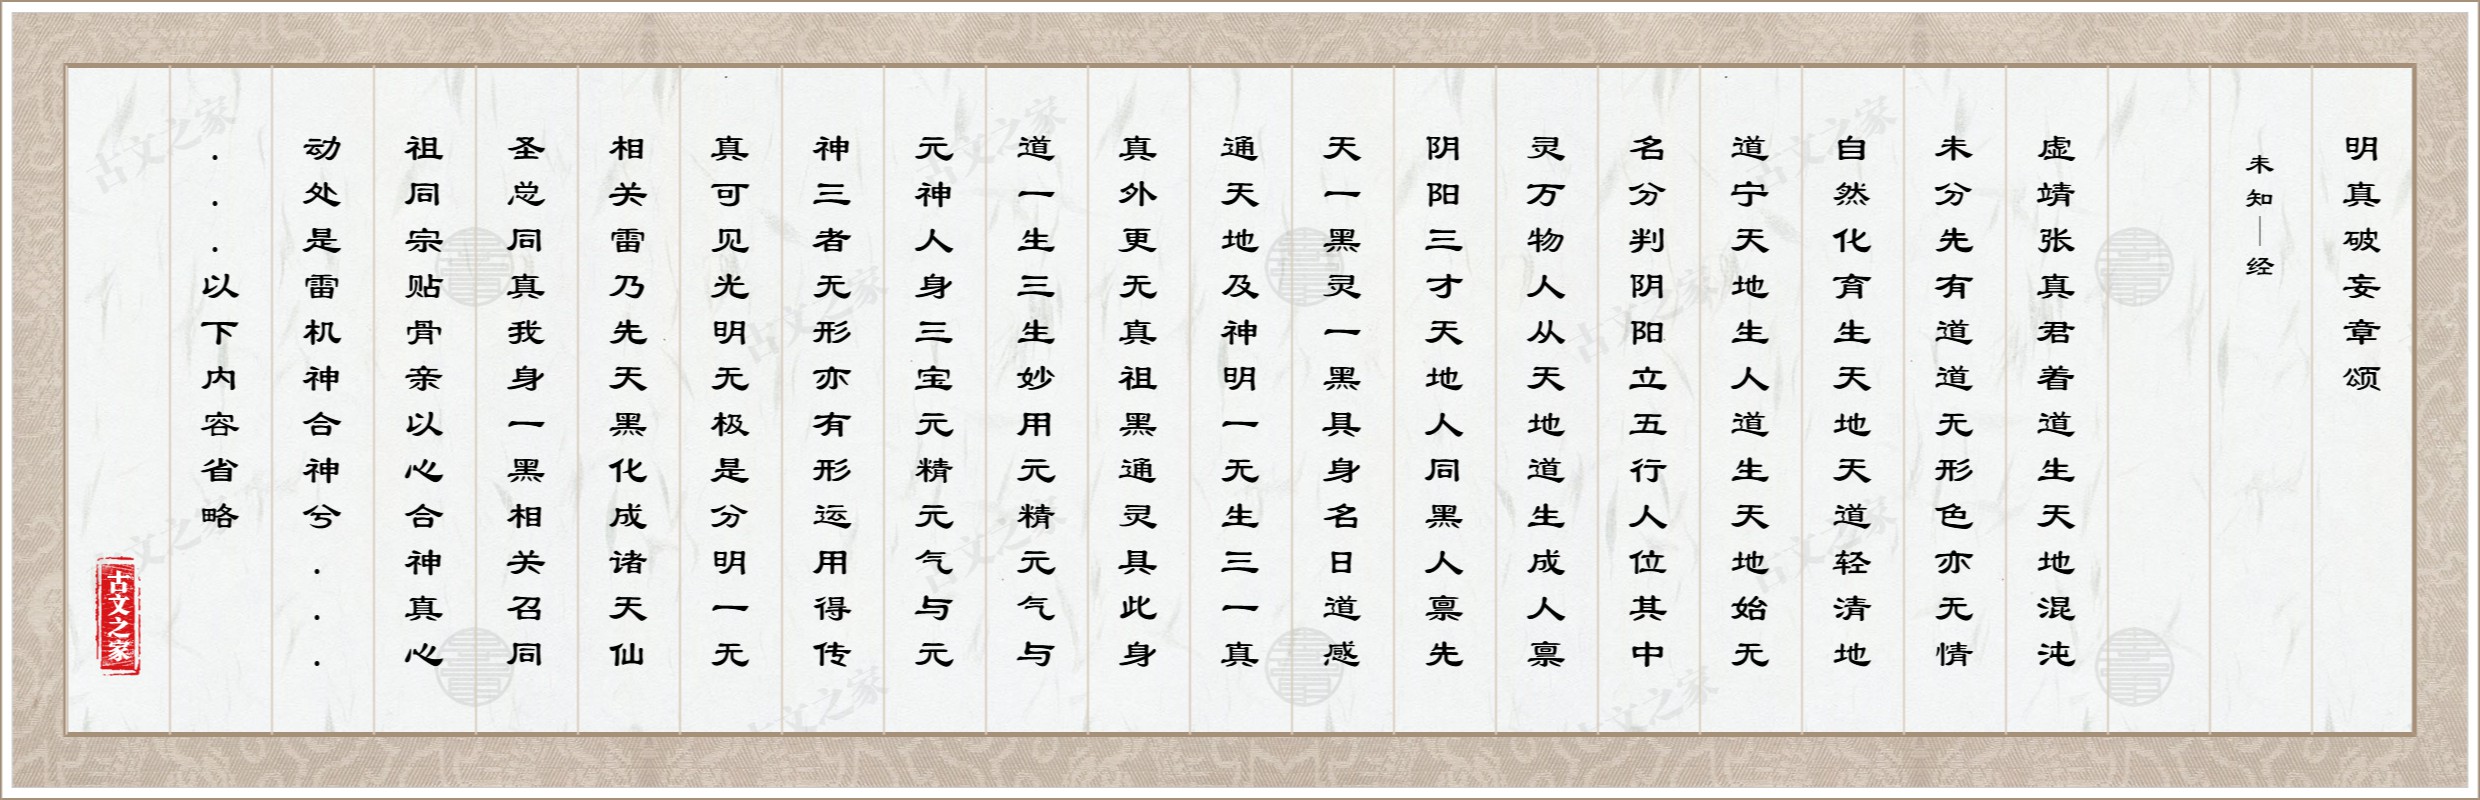 明真破妄章颂
未知—经
虚靖张真君着道生天地混沌
未分先有道道无形色亦无情
自然化育生天地天道轻清地
道宁天地生人道生天地始无
名分判阴阳立五行人位其中
灵万物人从天地道生成人禀
阴阳三才天地人同黑人禀先
天一黑灵一黑具身名日道感
通天地及神明一无生三一真
真外更无真祖黑通灵具此身
道一生三生妙用元精元气与
元神人身三宝元精元气与元
神三者无形亦有形运用得传
真可见光明无极是分明一无
相关雷乃先天黑化成诸天仙
圣总同真我身一黑相关召同
祖同宗贴骨亲以心合神真心
动处是雷机神合神兮...
...以下内容省略
古文之家